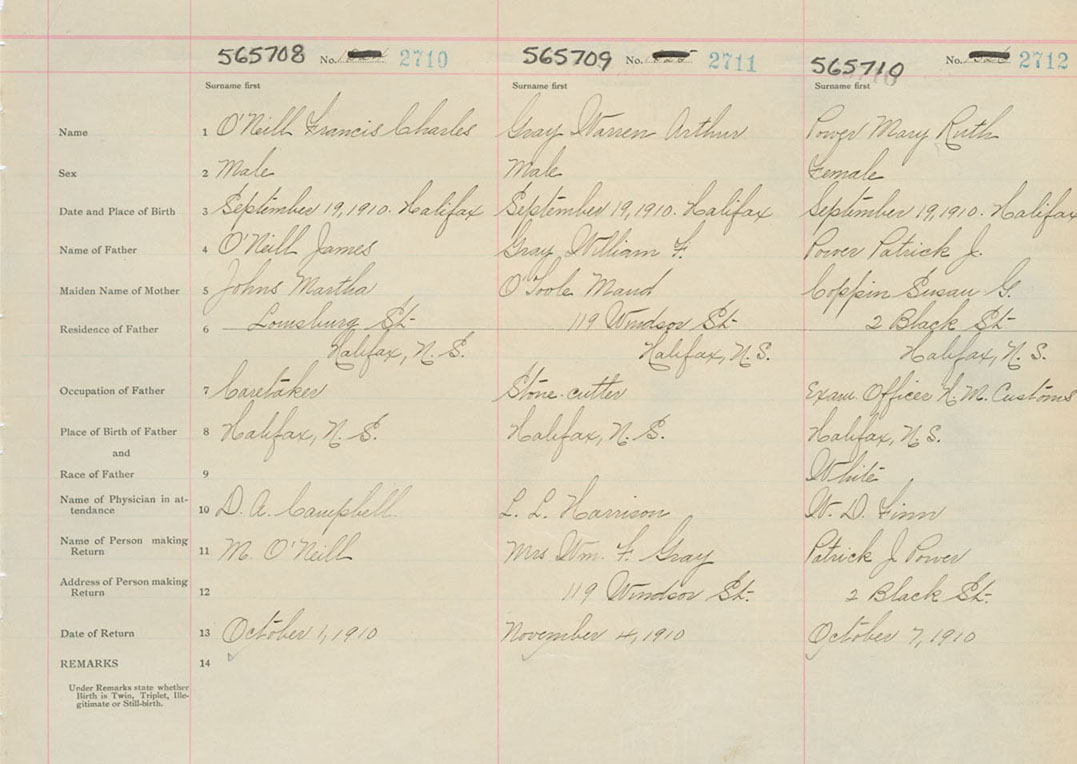 565708 No. 2710 565709 No. 2711 565710 No. 2712
Surname first Surname first Surname first
Name 1 O'Neill Francis Charles Gray Warren Arthur Power Mary Ruth
Sex 2 Male Male Female
Date and Place of Birth 3 September 19, 1910. Halifax September 19, 1910. Halifax September 19, 1910. Halifax
Name of Father 4 O'Neill James Gray William F. Power Patrick J.
Maiden Name of Mother 5 Johns Martha O'Toole Maud Coppin Susan G.
Residence of Father 6 Louisburg St. 119 Windsor St. 2 Black St.
Halifax, N. S. Halifax, N. S. Halifax, N. S.
Occupation of Father 7 Caretaker Stone-cutter Exam Officer H. M. Customs
Place of Birth of Father 8 Halifax, N. S. Halifax, N. S. Halifax, N. S.
and
Race of Father 9 White
Name of Physician in at-
tendance 10 D. A. Campbell L. L. Harrison W. D. Finn
Name of Person making
Return 11 M. O'Neill Mrs Wm. F. Gray Patrick J. Power
Address of Person making
Return 12 119 Windsor St. 2 Black St.
Date of Return 13 October 1, 1910 November 4, 1910 October 7, 1910
REMARKS 14
Under Remarks state whether
Birth is Twin, Triplet, Ille-
gitimate or Still-birth.